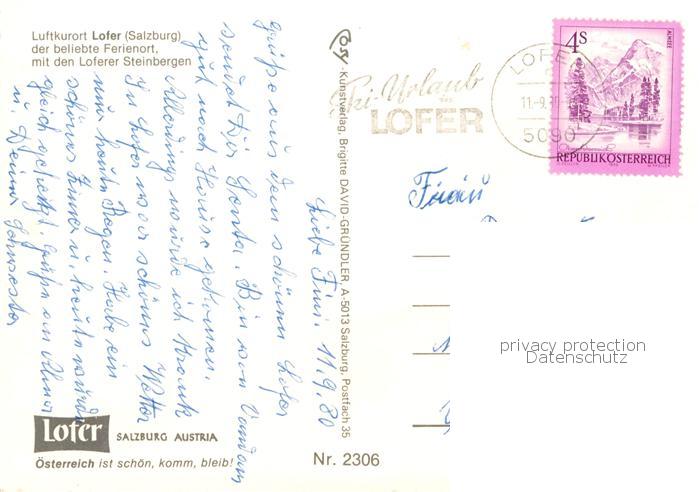 Luftkurort Lofer (Salzburg)
der beliebte Ferienort,
mit den Loferer Steinbergen
Liebe Fini. 11.9.80
grüße aus dem schönen Lofer
sendet Dir Bin von
gut nach Hause gekommen.
Allerdings wurde ich krank
In Lofer war schönes Wetter
nur heute Regen. Habe ein
schönes Zimmer u. heute wurde
gleich geheizt. Grüße an
u. Deine Schwester
Lofer
SALZBURG AUSTRIA
Österreich ist schön, komm, bleib!
Cosy-Kunstverlag, Brigitte DAVID-GRÜNDLER, A-5013 Salzburg, Postfach 35
Nr. 2306
Ski-Urlaub
LOFER
LOFER
11.-9.80
5090
4S
ALMSEE
Oberösterreich
REPUBLIK ÖSTERREICH
Frau
privacy protection
Datenschutz